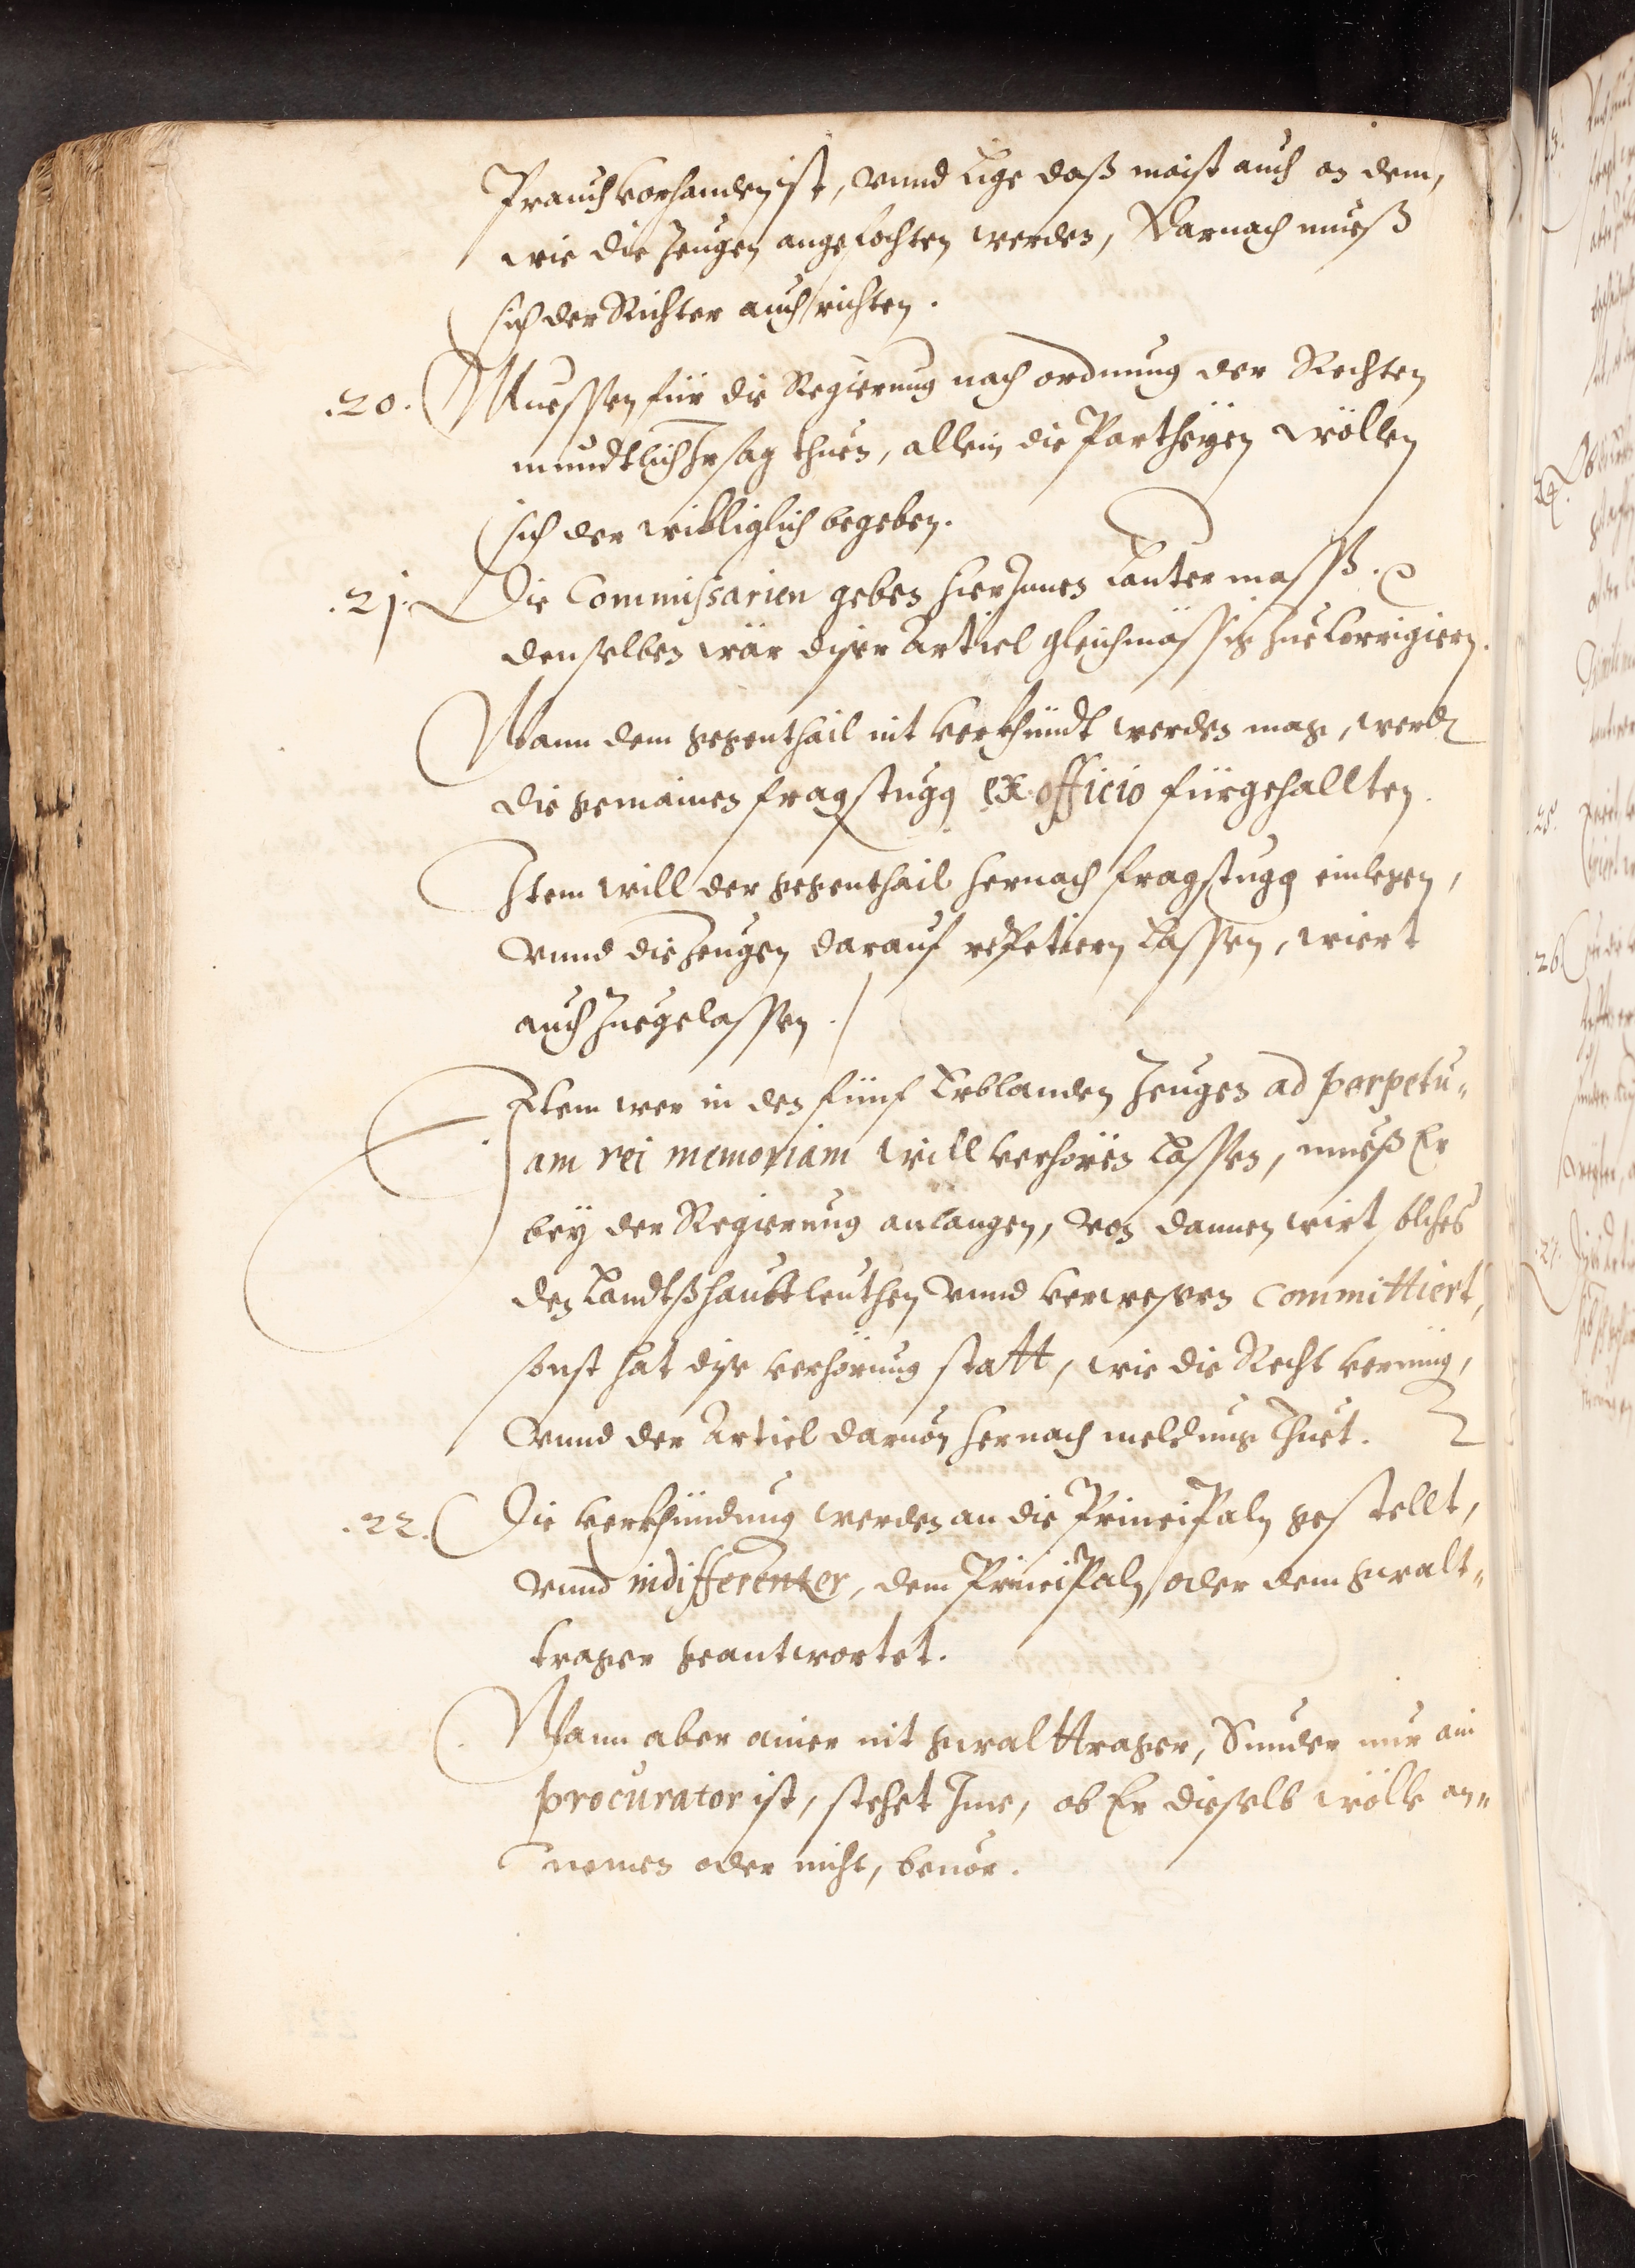 Prauch vorhanden ist, vnnd lige daß maist auch an dem,
wie die Zeugen angefochten werden, Darnach mueß
sich der Richter auch richten.
.20. Muessen für die Regierung nach ordnung der Rechten
mundtlich Ir sag thuen, allein die Partheyen wöllen
sich der willigelich begeben.
.21. Die Commissarien geben hierJnnen lauter masß.
denselben wär diser Articl gleichmässig zue Corrigiern.
Wann dem gegenthail nit verkhündt werden mag, werdn
die gemainen fragstugg ex officio fürgehallten.
Item will der gegenthail hernach fragstugg einlegen,
vnnd die Zeugen darauf repetiern lassen, wiert
auch Zuegelassen.
Item wer in den fünf Erblanden Zeugen ad perpetu„
am rei memoriam will verhören lassen, mueß Er
bey der Regierung anlangen, von dannen wirt solches
den Landtßhaubtleuthen vnnd verwesern committiert,
sonst hat dise verhörung statt, wie die Recht vermüg,
vnnd der Articl daruon hernach meldung thuet.
.22. Die verkhündung werden an die Principaln gestellt,
vnnd indifferenter, dem Principaln, oder dem gwalt„
trager geantwortet.
Wann aber ainer nit gwalttrager, Sunder nur ain
procurator ist, stehet Ime, ob Er dieselb wölle an„
nemen oder nicht, beuor.
24.
25.
.26.
.27.